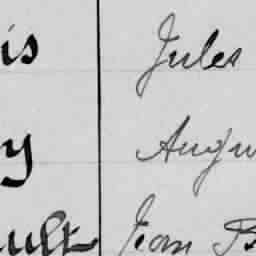 is Jules
y Augu
ult Jean B